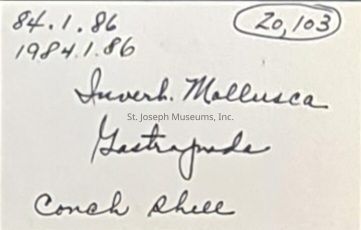 84.1.86 20,103
1984.1.86
Inverh. Mollusca
St. Joseph Museums, Inc.
Gastrapoda
Conch Shell